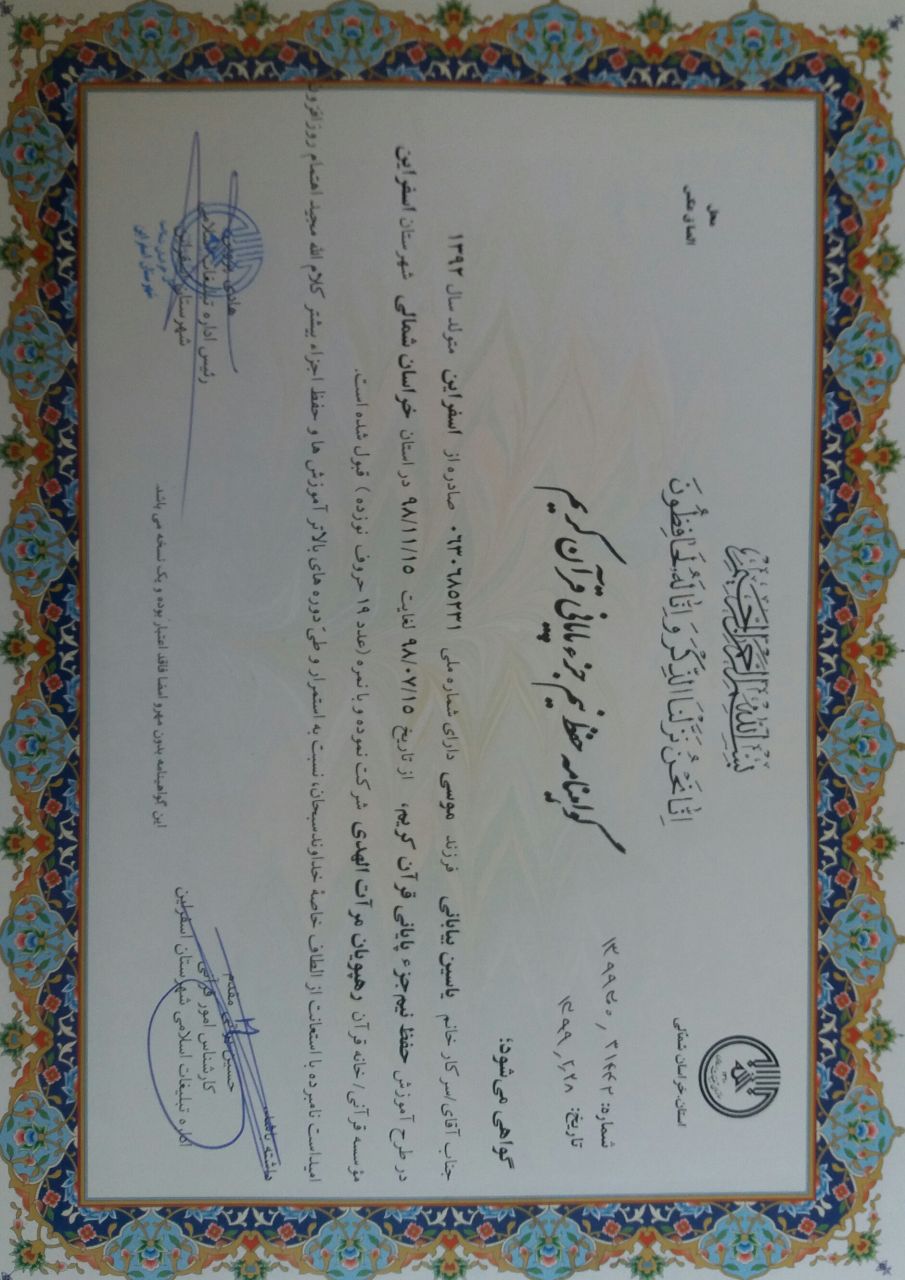 بسم الله الرحمن الرحیم
إِنَّا نَحْنُ نَزَّلْنَا الذِّكْرَ وَ إِنَّا لَهُ لَحَافِظُونَ
استان خراسان شمالی
محل
الصاق عکس
شماره:
تاریخ: ۱۳۹۹٫۲٫۲۸
گواهینامه حفظ نیم جزء پایانی قرآن کریم
گواهی می شود:
جناب آقای/سرکار خانم یاسین بیابانی فرزند موسی دارای شماره ملی ۰۶۳۰۶۸۵۲۳۱ صادره از اسفراین متولد سال ۱۳۹۲
در طرح آموزش حفظ نیم‌جزء پایانی قرآن کریم، از تاریخ ۹۸/۰۷/۱۵ لغایت ۹۸/۱۱/۱۵ در استان خراسان شمالی شهرستان اسفراین
مؤسسه قرآنی/خانه قرآن رهپویان مرآت الهدی شرکت نموده و با نمره (عدد ۱۹ حروف نوزده) قبول شده است.
امیداست نامبرده با استعانت از الطاف خاصهٔ خداوندسبحان، نسبت به استمرار و طیّ دوره های بالاتر آموزش ها و حفظ اجزاء بیشتر کلام الله مجید اهتمام روزافزون
داشته باشند.
حسین مقدم
کارشناس امور قرآنی
اداره تبلیغات اسلامی شهرستان اسفراین
هادی
رئیس اداره تبلیغات اسلامی
شهرستان اسفراین
این گواهینامه بدون مهر و امضا فاقد اعتبار بوده و یک نسخه می باشد.